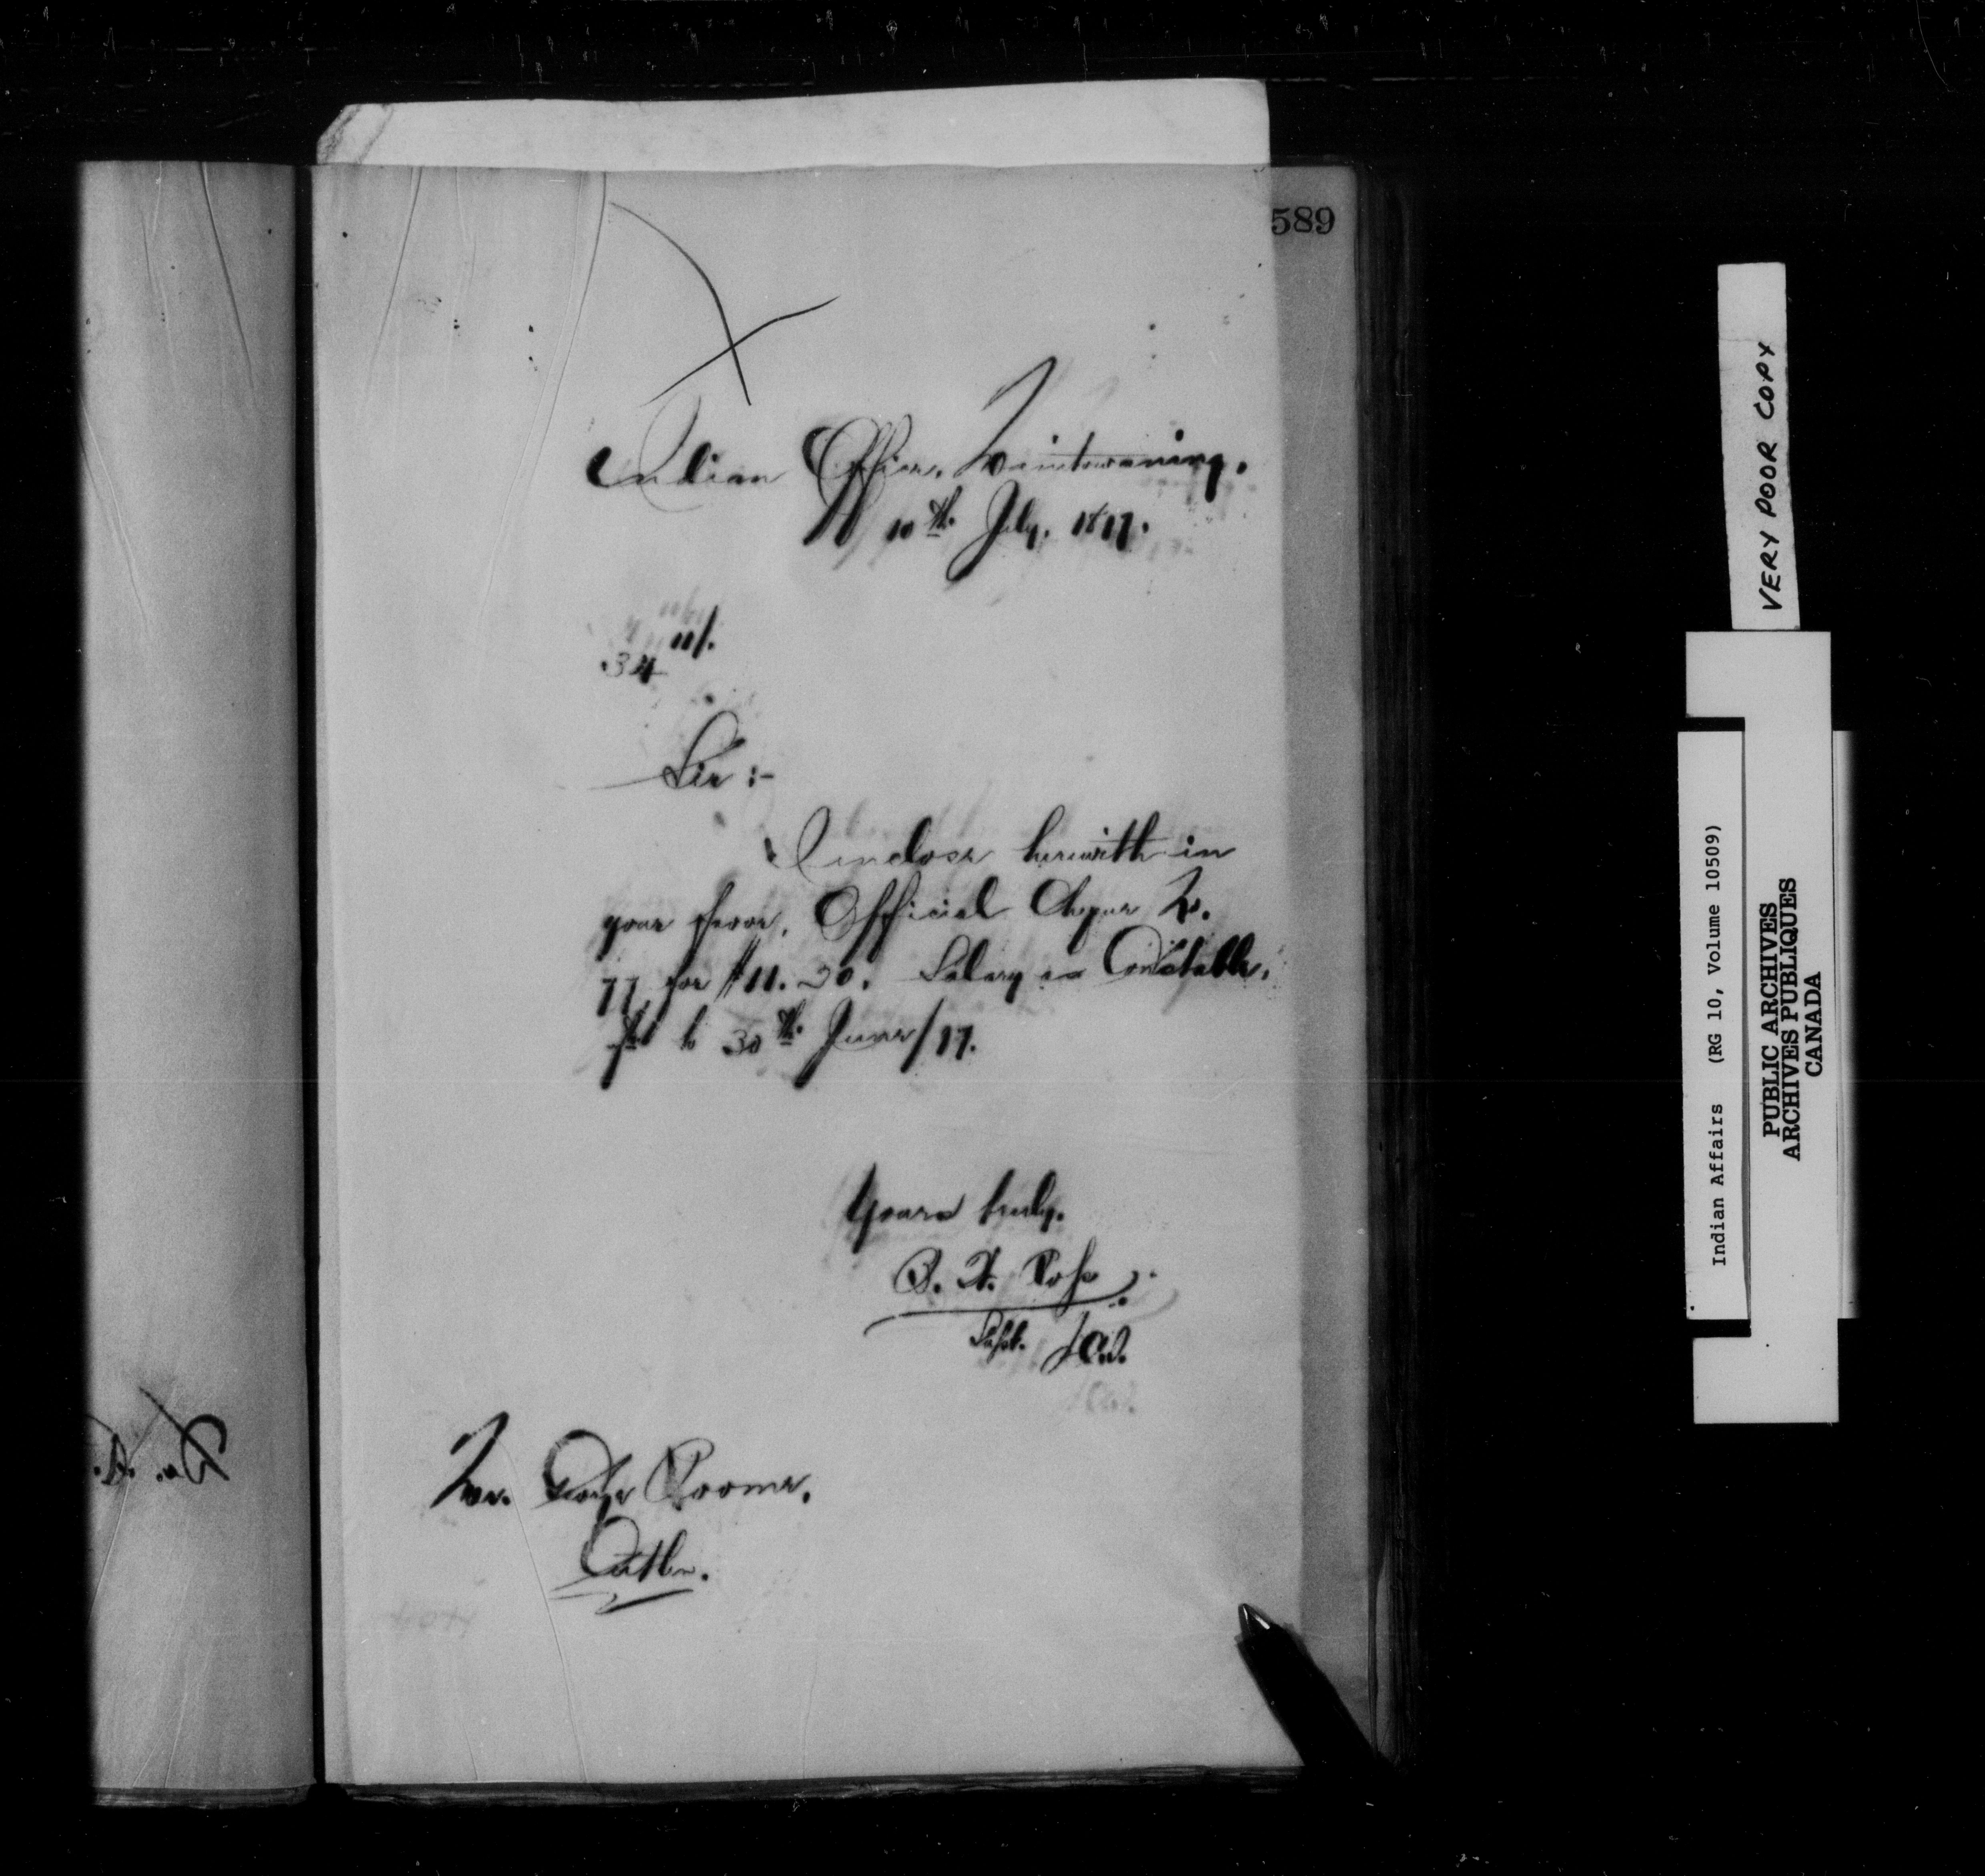 589
Indian Office, Manitowaning,
10th July, 1897.
11/.
34
Sir :-
I enclose herewith in
your favor, Official Cheque No.
77 for $11.20. Salary as Constable,
to 30th June/97.
Yours truly,
B. W. Ross
Supt. I.A.
Mr. George
VERY POOR COPY
Indian Affairs (RG 10, Volume 10509)
PUBLIC ARCHIVES
ARCHIVES PUBLIQUES
CANADA